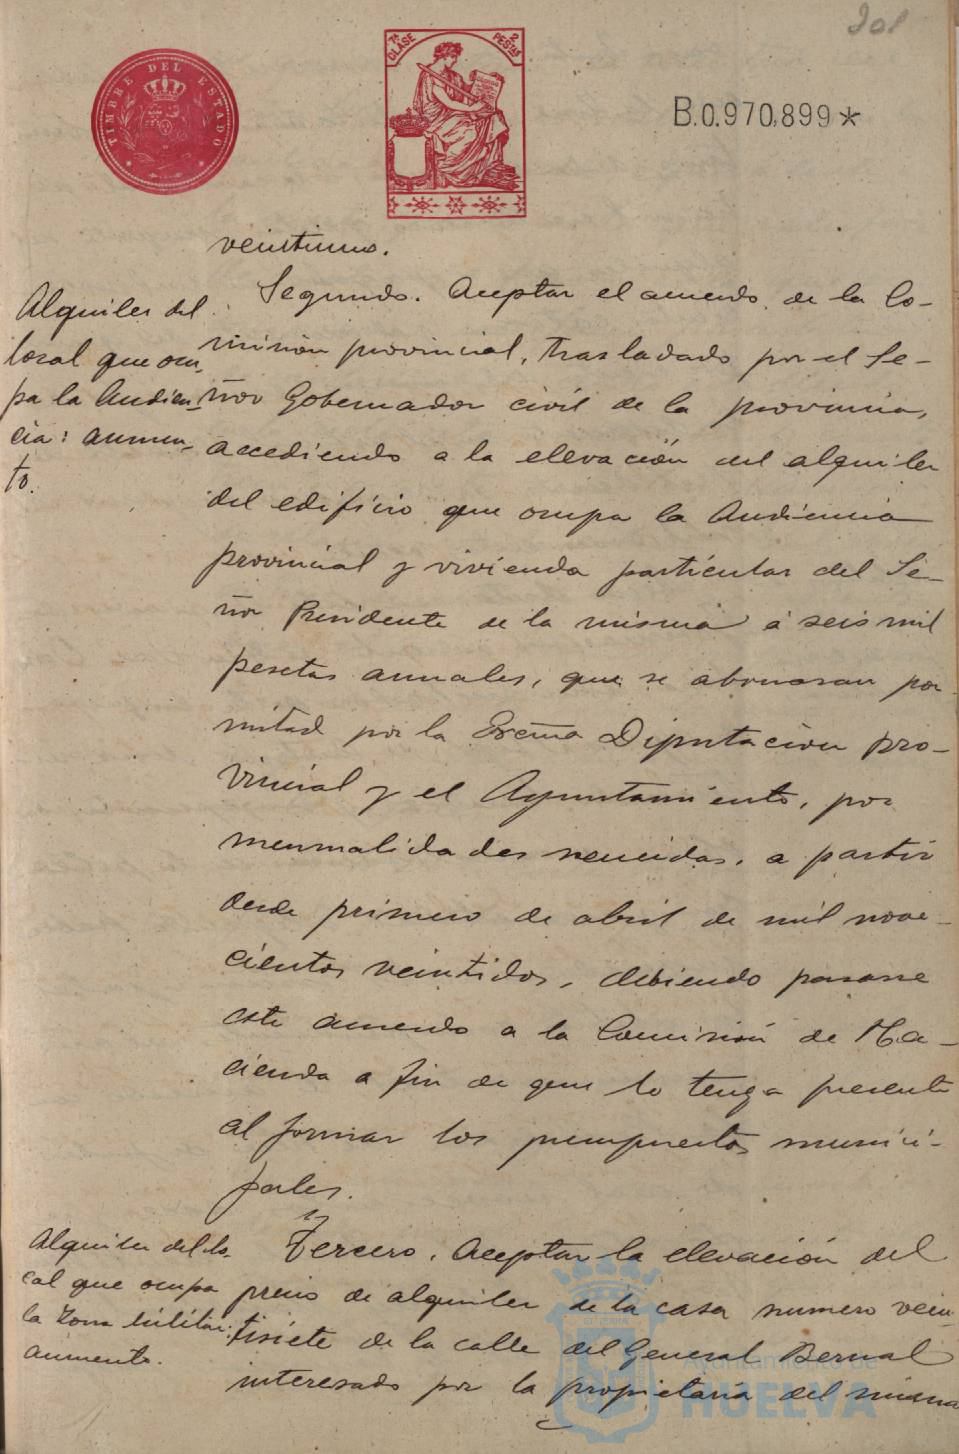 201
TIMBRE DEL ESTADO
7ª CLASE 2 PESETAS
B.0.970,899*
veintiuno.
Alquiler del
local que ocu-
pa la Audien-
cia: aumen-
to.
Segundo. Aceptar el acuerdo de la Co-
misión provincial, trasladado por el Se-
ñor Gobernador civil de la provincia,
accediendo a la elevación del alquiler
del edificio que ocupa la Audiencia
provincial y vivienda particular del Se-
ñor Presidente de la misma á seis mil
pesetas anuales, que se abonaran por
mitad por la Excma Diputación pro-
vincial y el Ayuntamiento, por
mensualidades vencidas, a partir
desde primero de abril de mil nove-
cientos veintidos, debiendo pasarse
este acuerdo a la Comisión de Ha-
cienda a fin de que lo tenga presente
al formar los presupuestos munici-
pales.
Alquiler del lo-
cal que ocupa
la Zona Militar:
aumento.
Tercero. Aceptar la elevación del
precio de alquiler de la casa numero vein-
tisiete de la calle del General Bernal
interesado por la propietaria del misma
Ayuntamiento de
HUELVA